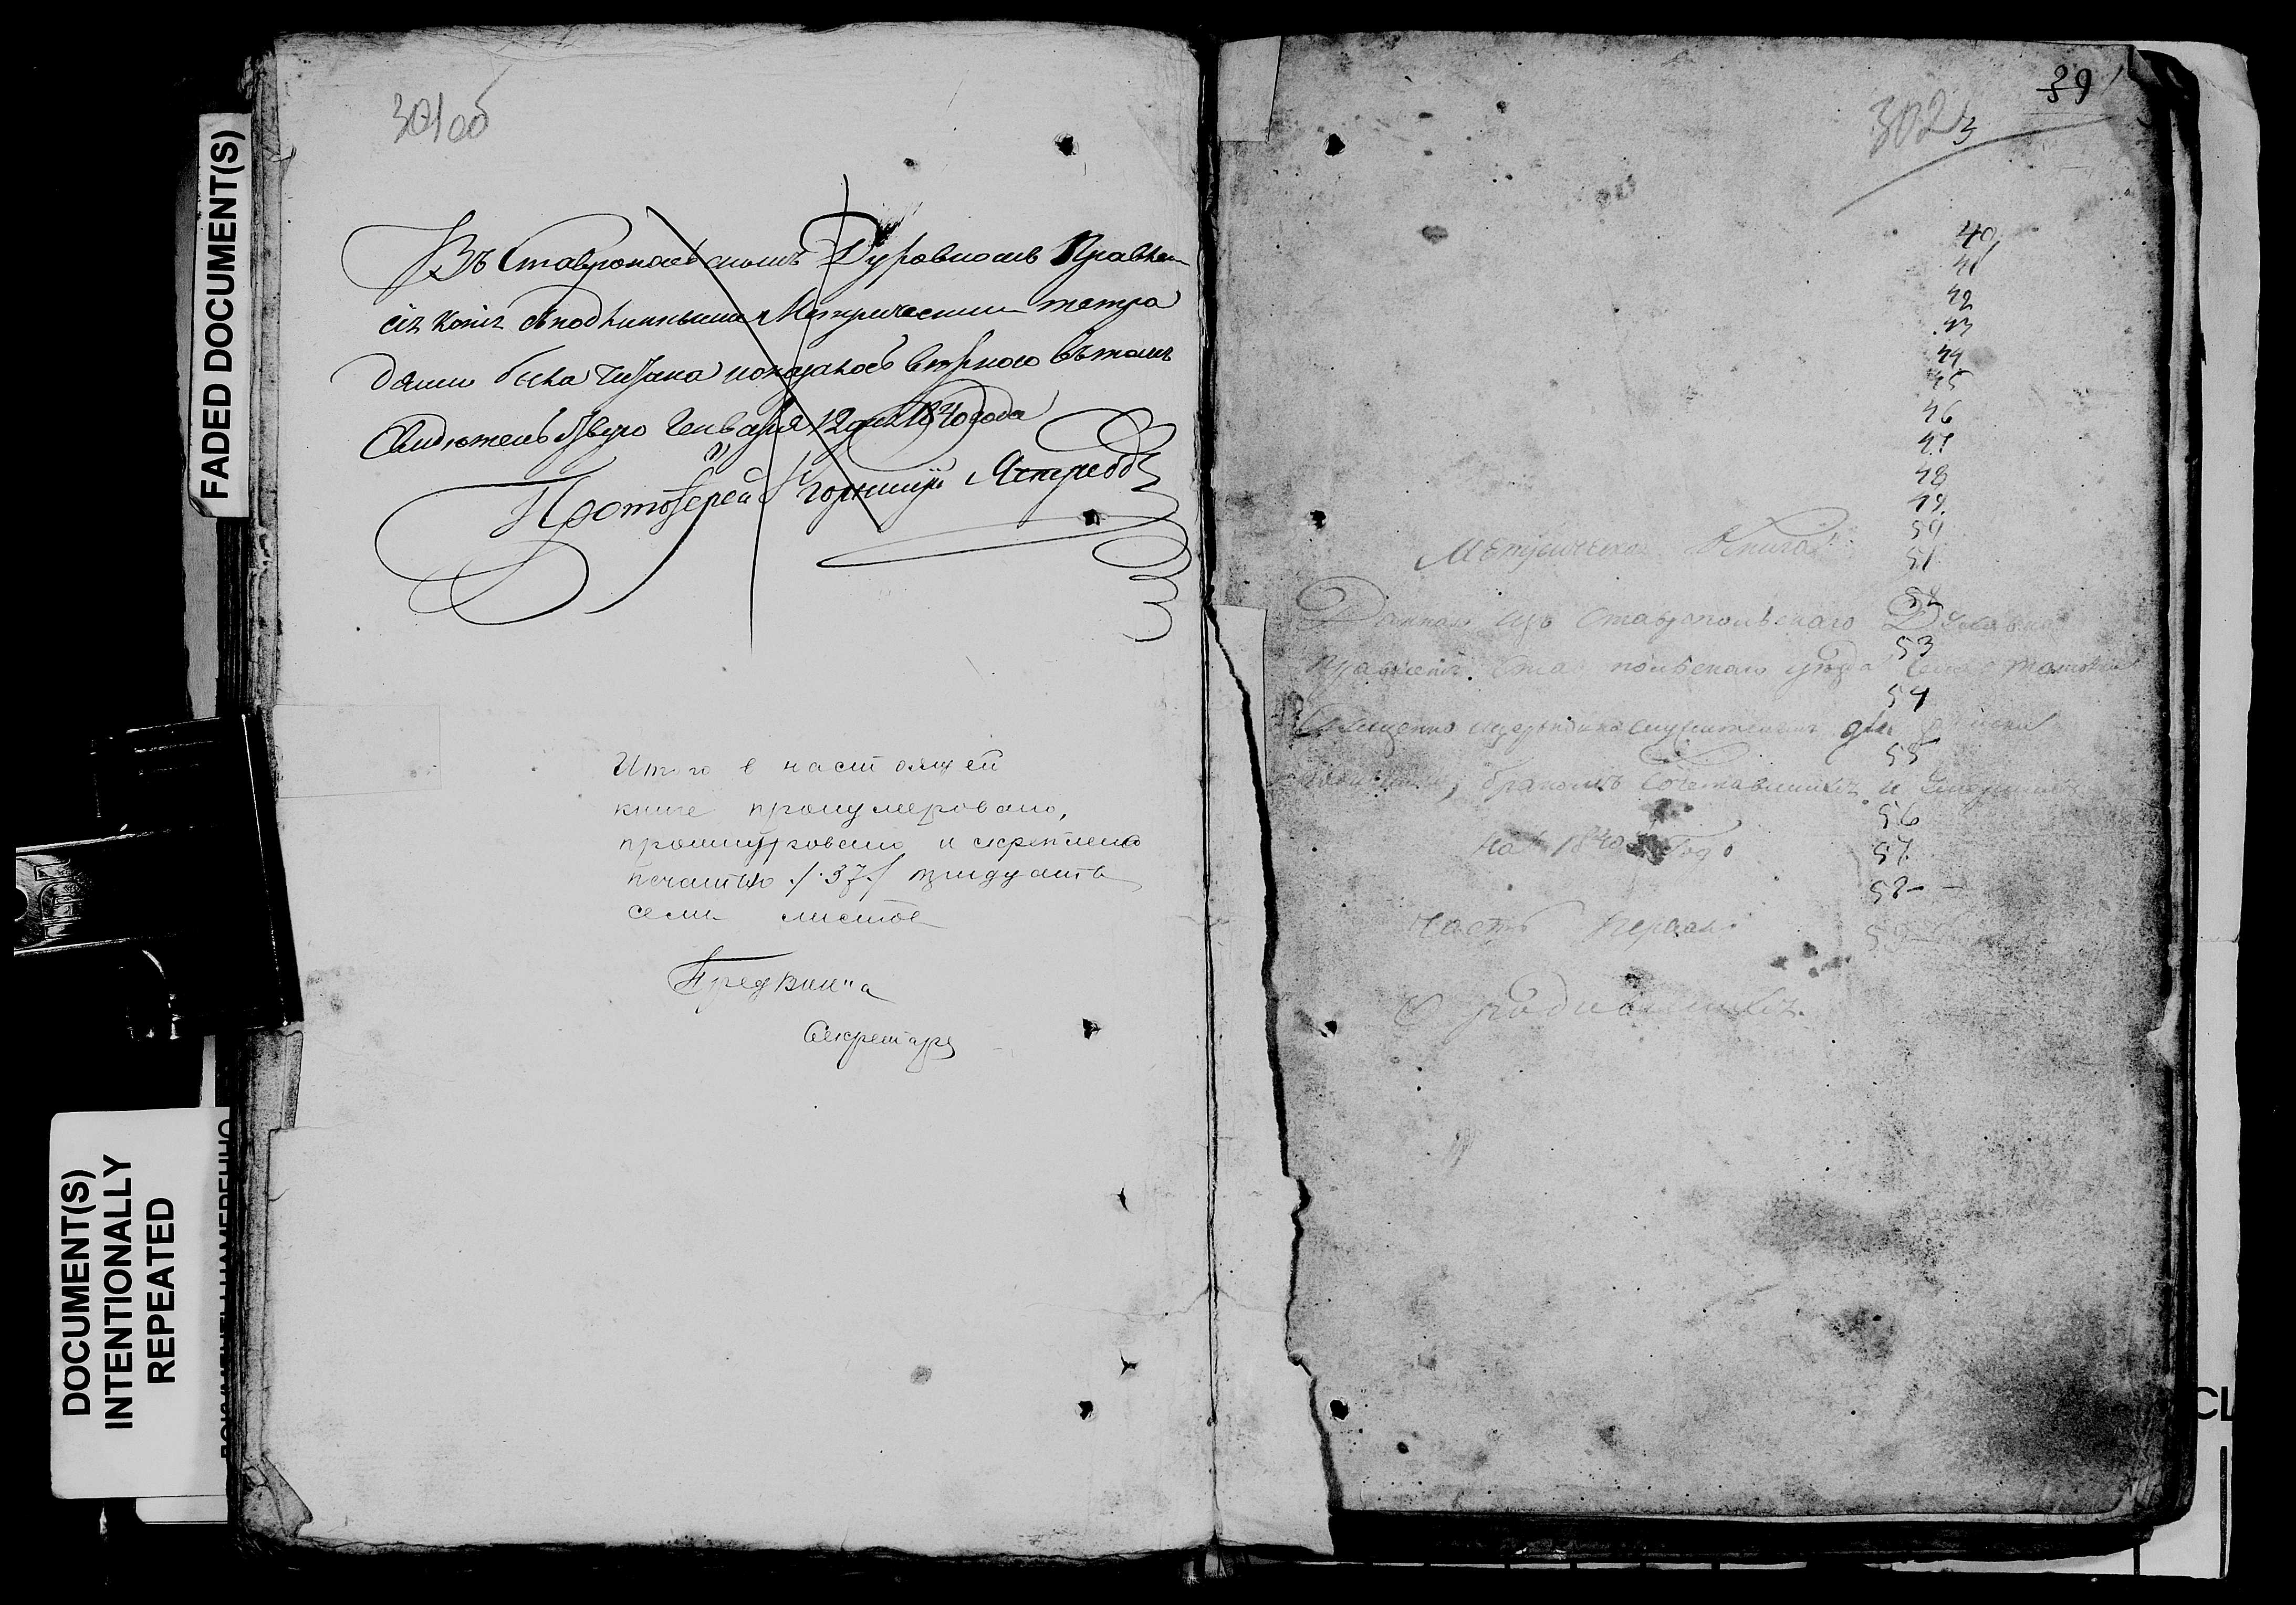 FADED DOCUMENT(S)
DOCUMENT(S)
INTENTIONALLY
REPEATED
301об
Въ Ставропольскомъ Духовномъ Правлен
сія копія съ подлинными Метрическими тетра
дями была читана и оказалось вѣрною въ томъ
Свидѣтельствую Генваря 12 дня 1840 года
Протоіерей Григорій Ястребовъ
Итого в настоящей
книге пронумеровано,
прошнуровано и скреплено
печатью /37/ тридцать
семь листов
Предвика
Секретарь
39
302
3
40
41
42
43
44
45
46
47
48
49
50
51
52
53
54
55
56
57
58
59
Метрическая Книга
Данная изъ Ставропольского Духовнаго
Правленія Ставропольскаго уезда села
Священно церковнослужителямъ для
бракомъ Сочетавшихся и Умершихъ
на 1840 Годъ
Часть Первая
О родившихся.
CL